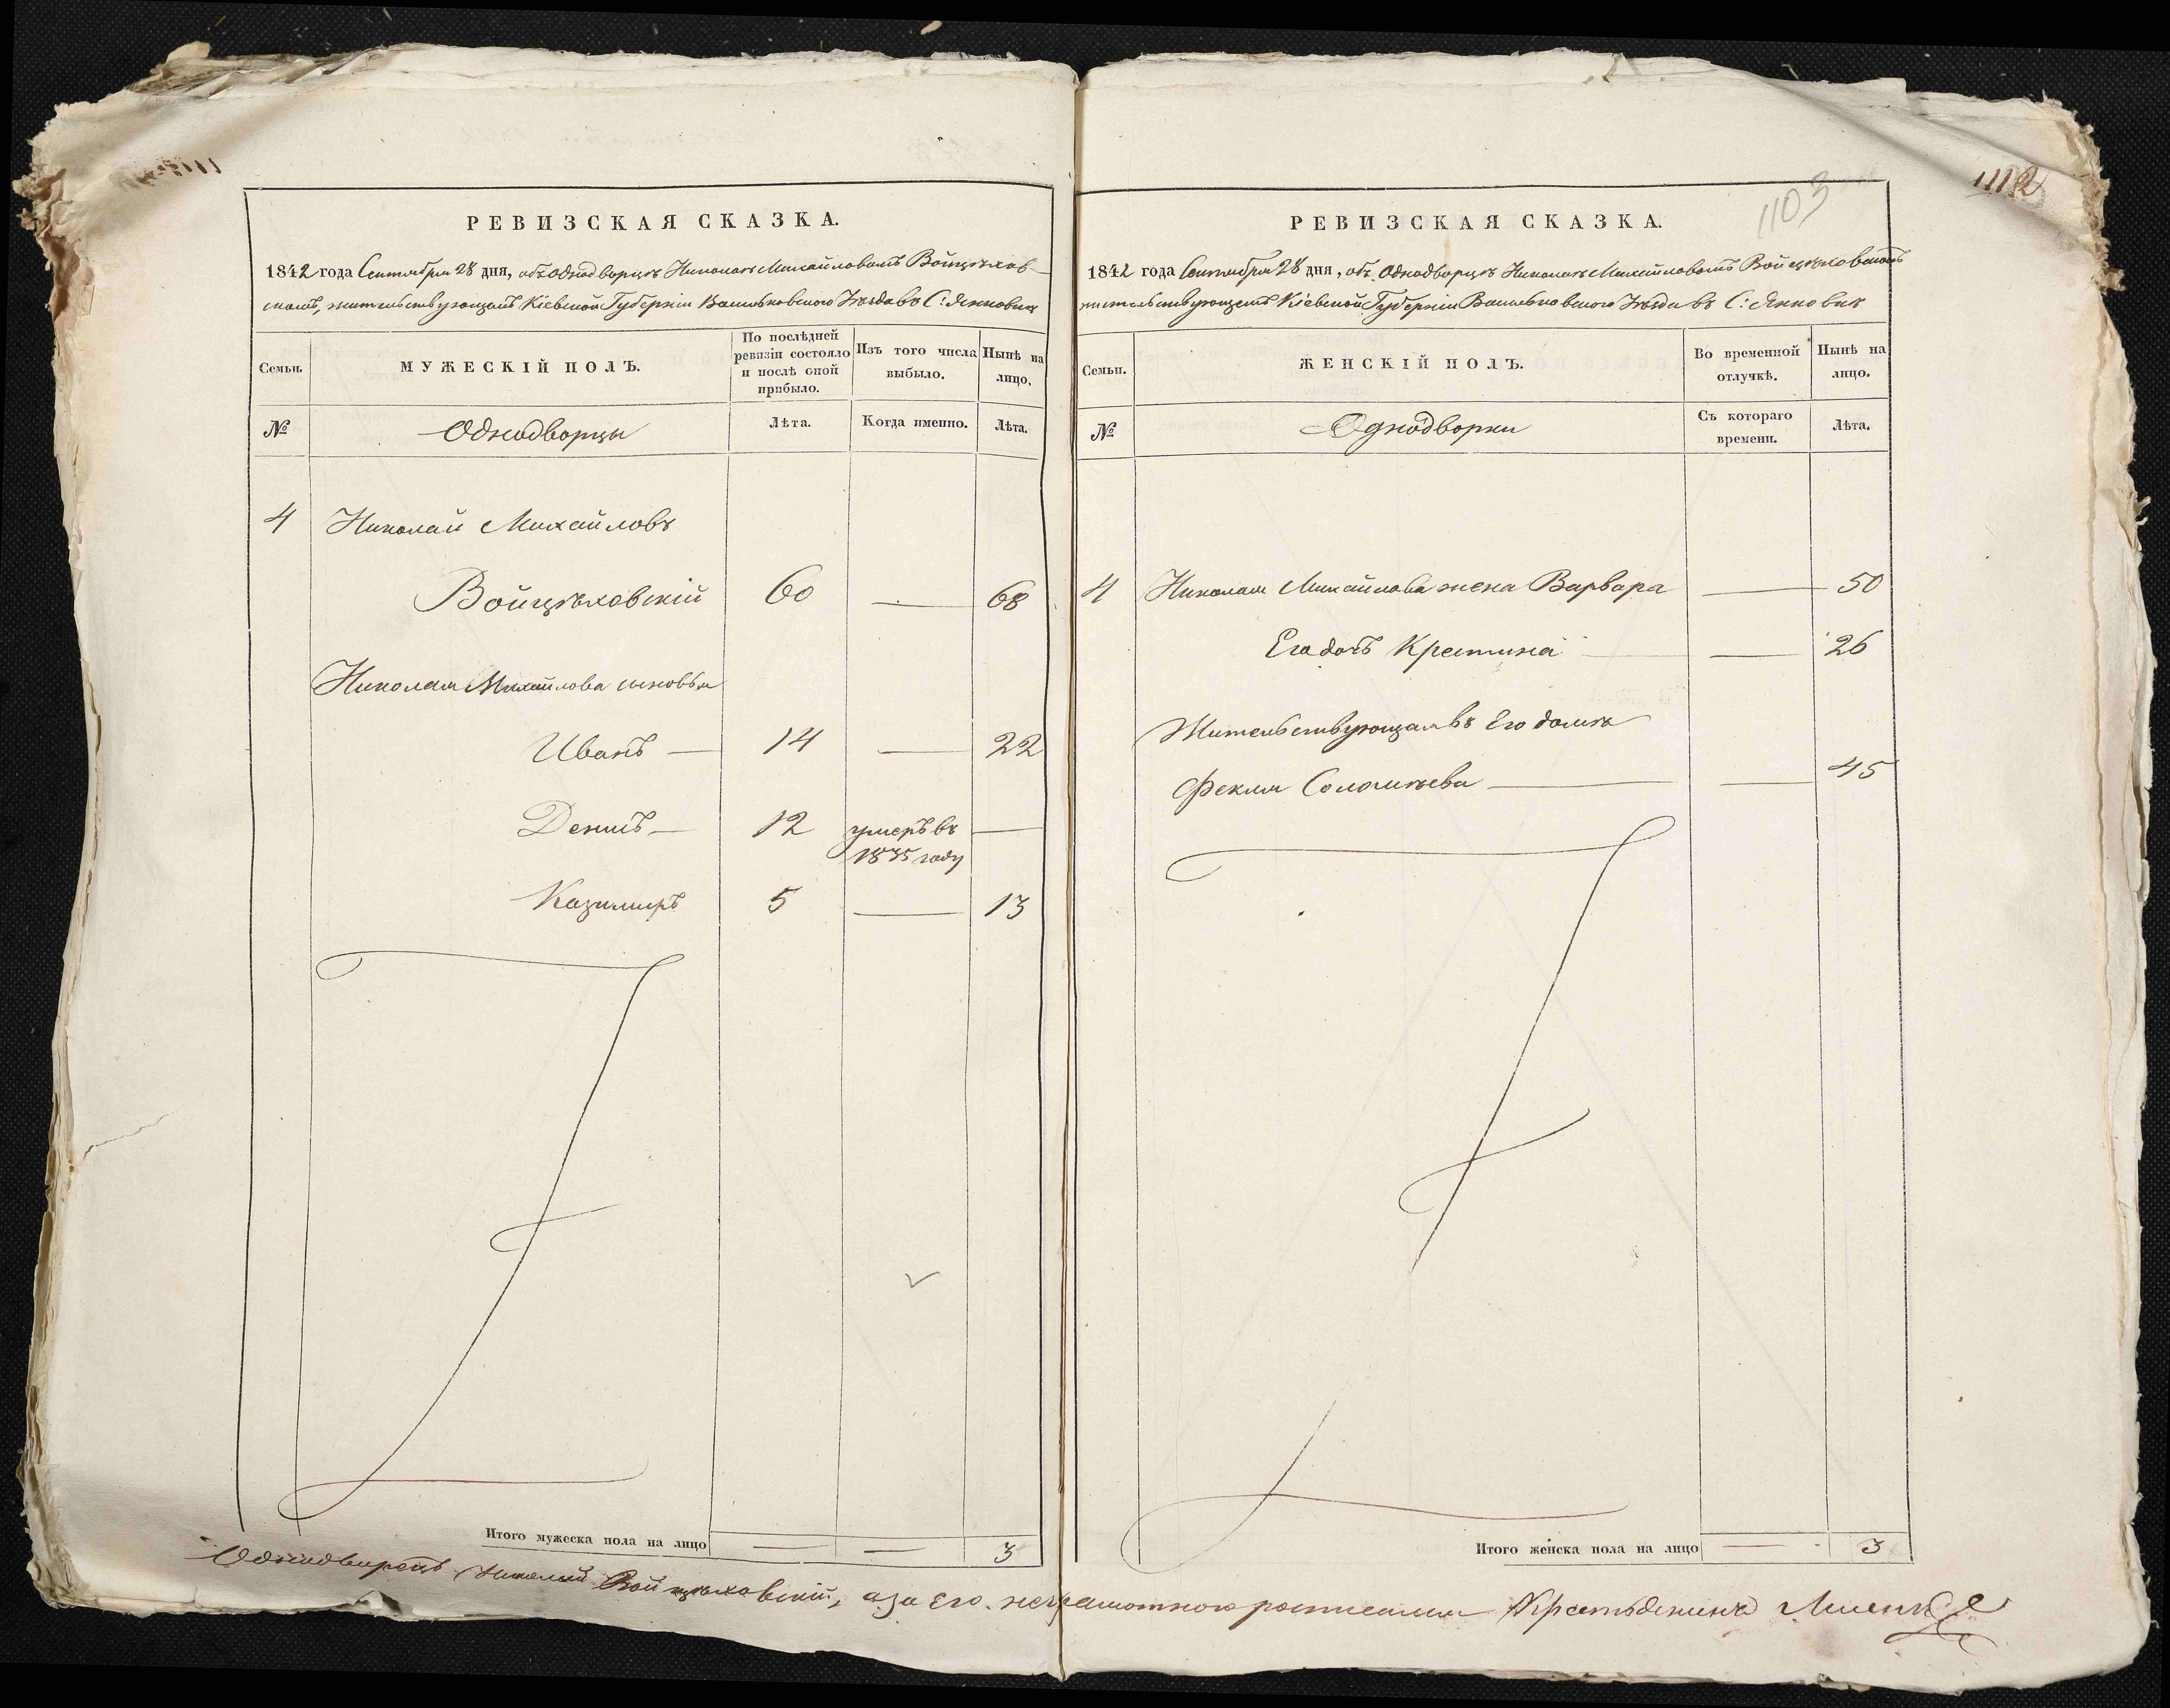 1112
1103
РЕВИЗСКАЯ СКАЗКА.
1842 года Сентября 28 дня, объ однодворцѣ Николаѣ Михайловомъ Войцѣхов-
скомъ, жительствующемъ Кіевской Губерніи Васильковскаго Уѣзда въ С: Янковкѣ
Семьи.
МУЖЕСКІЙ ПОЛЪ.
По послѣдней ревизіи состояло и послѣ оной прибыло.
Изъ того числа выбыло.
Нынѣ на лицо.
№
Однодворцы
Лѣта.
Когда именно.
Лѣта.
4 Николай Михайловъ
Войцѣховскій 60 — 68
Николая Михайлова сыновья
Иванъ — 14 — 22
Денисъ — 12 умеръ въ —
1835 году
Казимиръ 5 — 13
Итого мужеска пола на лицо — — 3
РЕВИЗСКАЯ СКАЗКА.
1842 года Сентября 28 дня, объ однодворцѣ Николаѣ Михайловомъ Войцѣховскомъ
жительствующемъ Кіевской Губерніи Васильковскаго Уѣзда въ С: Янковкѣ
Семьи.
ЖЕНСКІЙ ПОЛЪ.
Во временной отлучкѣ.
Нынѣ на лицо.
№
Однодворки
Съ котораго времени.
Лѣта.
4 Николая Михайлова жена Варвара — 50
Его дочь Крестина — 26
Жительствующая въ Его домѣ
Фекла Соломѣева — — 45
Итого женска пола на лицо — 3
Однодворецъ Николай Войцѣховскій, а за Его неграмотного росписался